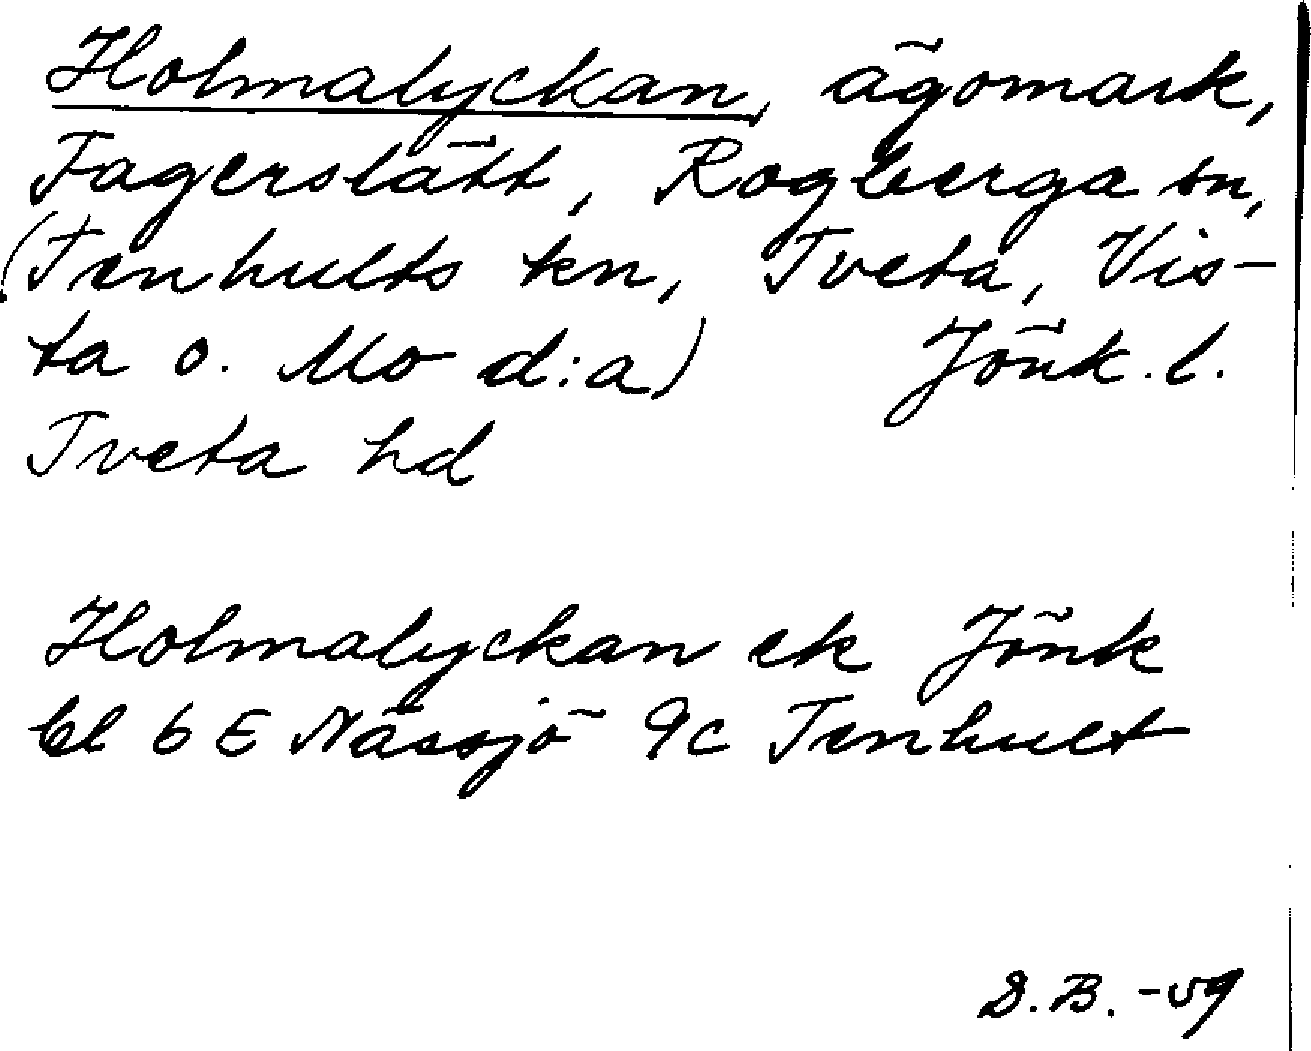 Holmalyckan, ägomark,
Fagerslätt, Rogberga sn,
(Tenhults kn, Tveta, Vis-
ta o. Mo d:a) Jönk. l.
Tveta hd
Holmalyckan ek Jönk
bl 6 E Nässjö 9c Tenhult
D.B. -59